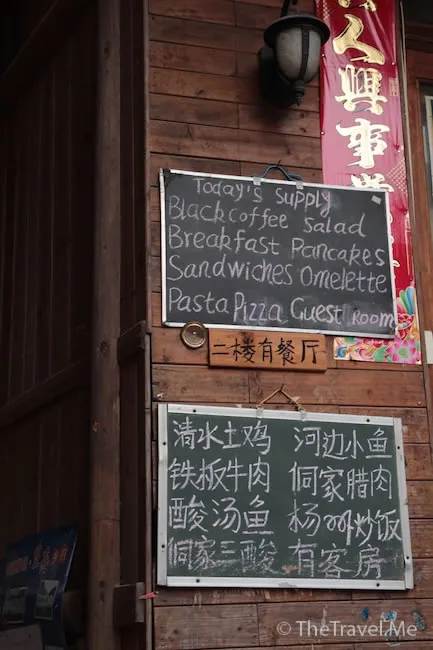 人興事
Today's Supply
Black Coffee Salad
Breakfast Pancakes
Sandwiches Omelette
Pasta Pizza Guest Room
二楼有餐厅
清水土鸡 河边小鱼
铁板牛肉 侗家腊肉
酸汤鱼 杨州炒饭
侗家三酸 有客房
© TheTravel.Me